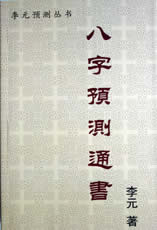 李元預測丛书
八字預測通書
李元 著